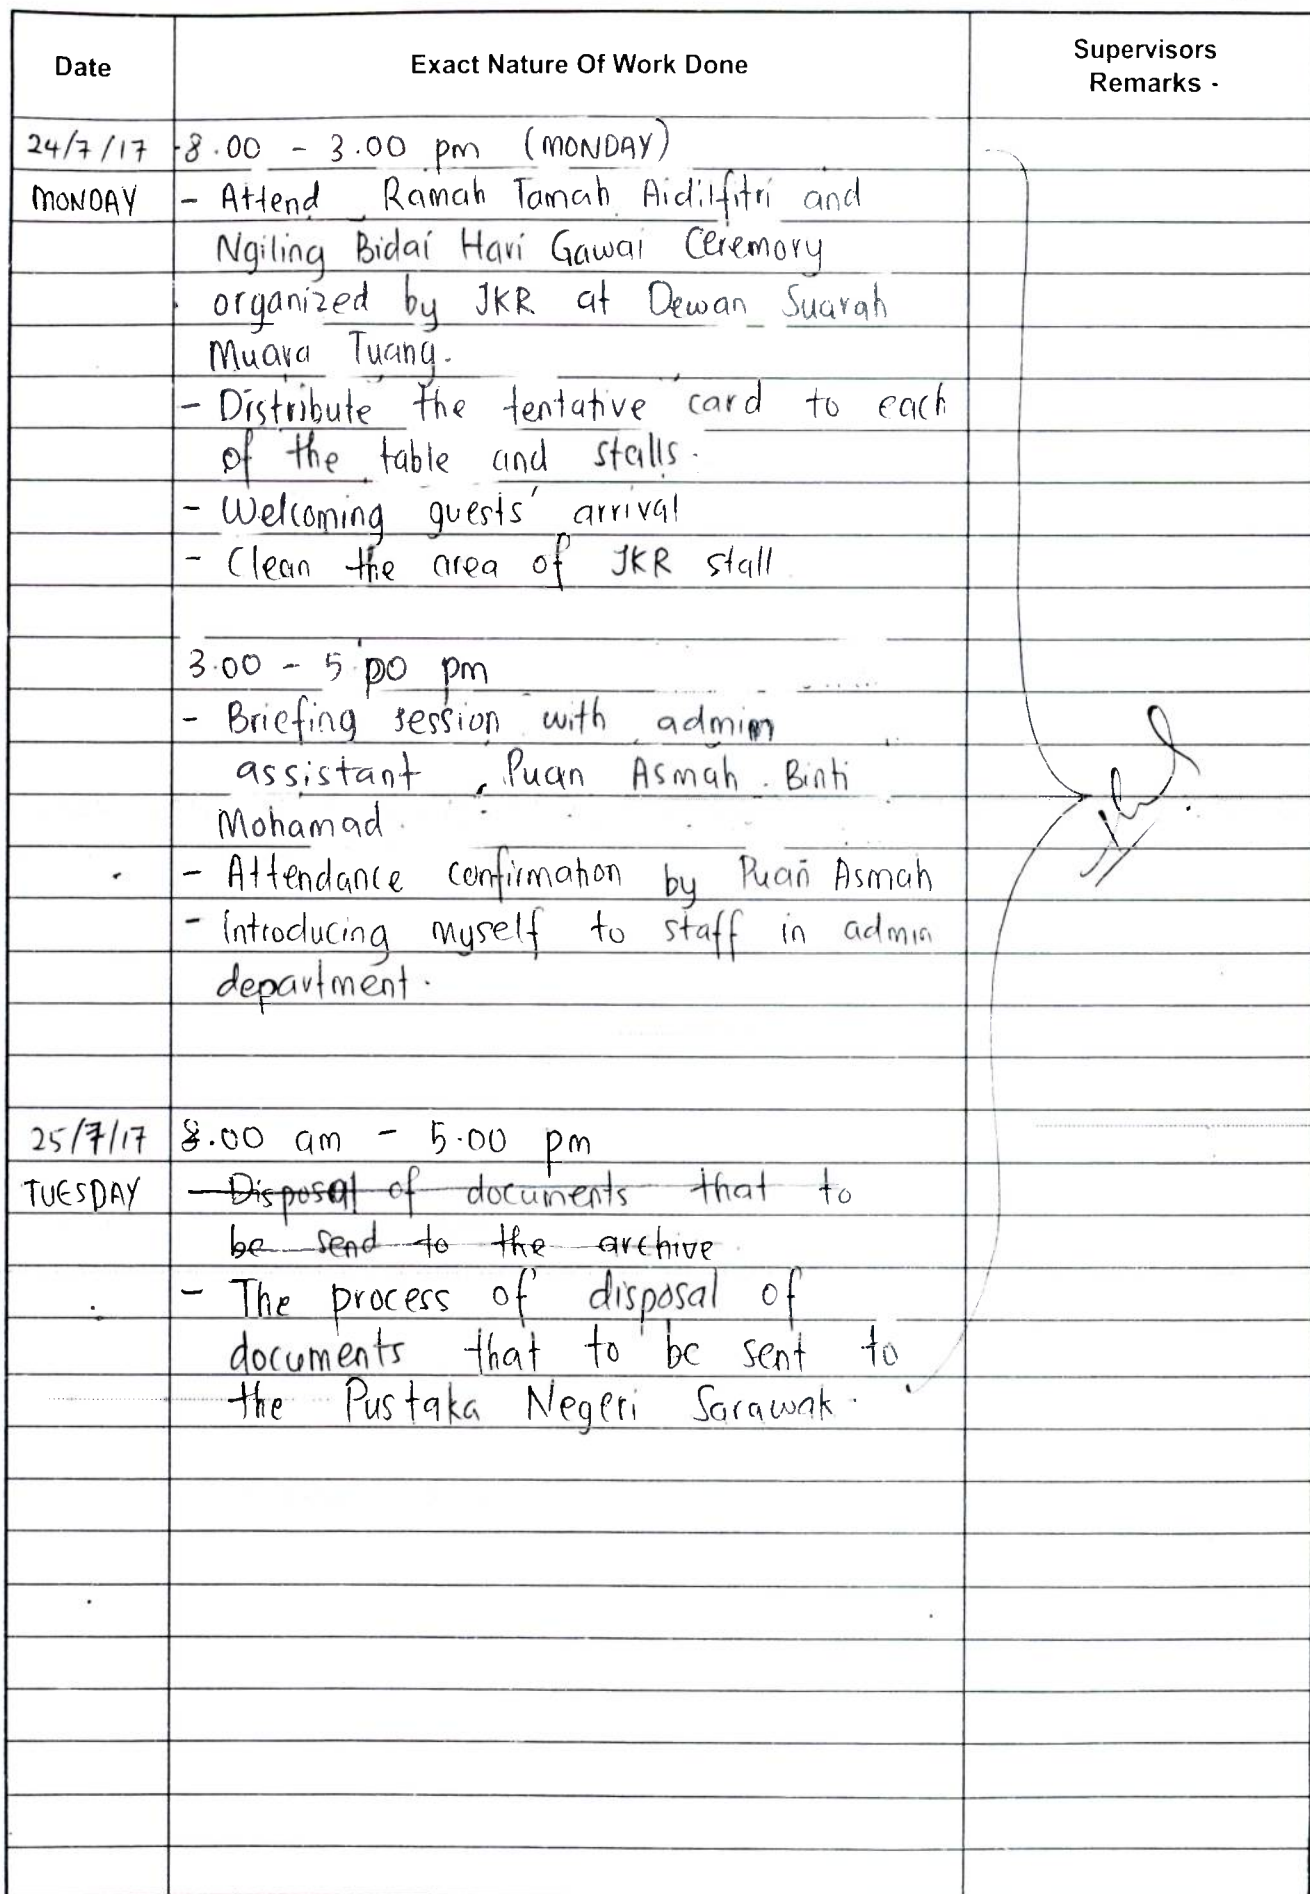 Date Exact Nature Of Work Done Supervisors
Remarks -
24/7/17 8.00 - 3.00 pm (MONDAY)
MONDAY - Attend Ramah Tamah Aidilfitri and
Ngiling Bidai Hari Gawai Ceremory
organized by JKR at Dewan Suarah
Muara Tuang.
- Distribute the tentative card to each
of the table and stalls.
- Welcoming guests' arrival
- Clean the area of JKR stall
3.00 - 5.00 pm
- Briefing session with admin
assistant, Puan Asmah Binti
Mohamad.
- Attendance confirmation by Puan Asmah
- Introducing myself to staff in admin
department.
25/7/17 8.00 am - 5.00 pm
TUESDAY - Disposal of documents that to
be send to the archive
- The process of disposal of
documents that to be sent to
the Pustaka Negeri Sarawak.